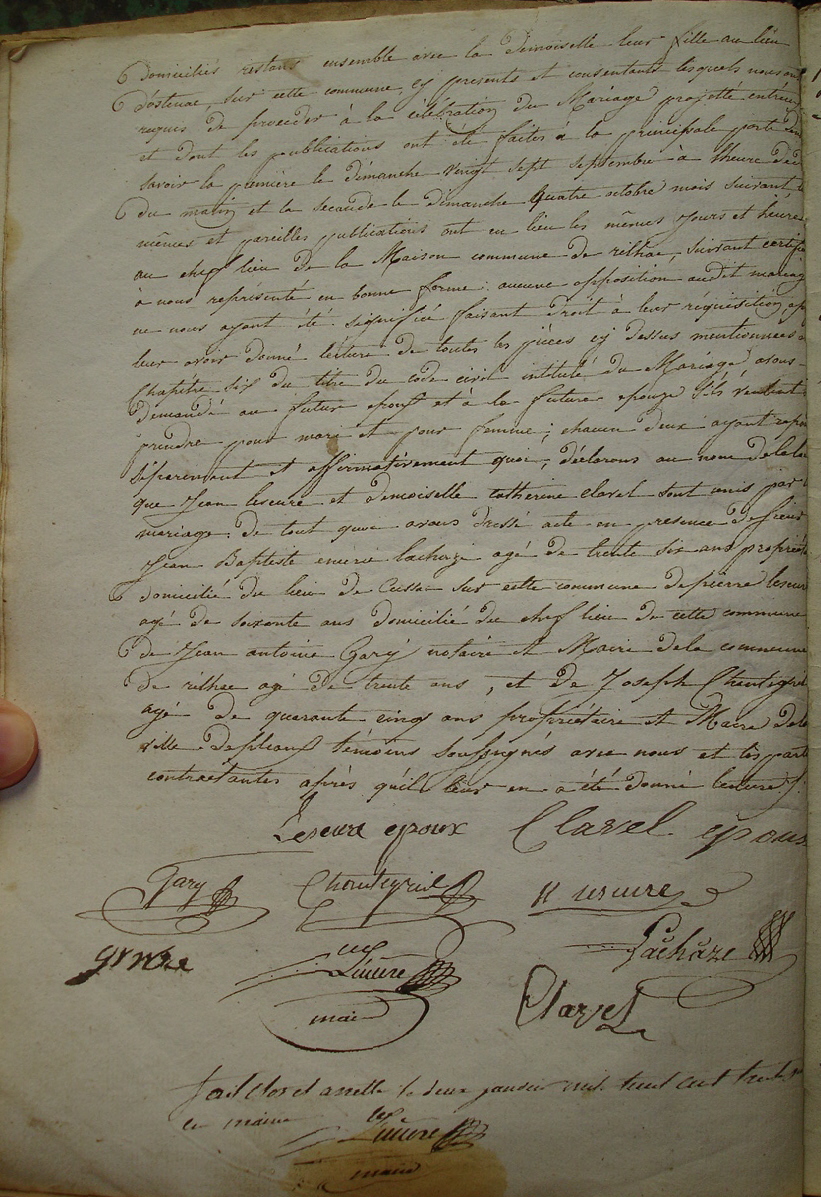 Domiciliés restans ensemble avec la demoiselle leur fille au lieu
d'ostenac, sur cette commune, cy presents et consentants lesquels nous ont
requis de proceder à la célébration du Mariage projetté entr'eux
et dont les publications ont été faites à la principale porte
savoir la première le dimanche vingt sept septembre à l'heure de
du matin et la seconde le dimanche quatre octobre mois suivant
mêmes et pareilles publications ont eu lieu les mêmes jours et heures
au chef lieu de la Maison commune de rilhac, suivant certificat
à nous représenté en bonne forme. aucune opposition audit mariage
ne nous ayant été signifiée faisant droit à leur réquisition
leur avoir donné lecture de toutes les pièces cy dessus mentionnées
Chapitre six du titre du code civil intitulé du Mariage, avons
demandé au futur epoux et à la future epouze s'ils veulent
prendre pour mari et pour femme; chacun deux ayant repondu
séparement et affirmativement quoi; déclarons au nom de la loi
que Jean lescure et demoiselle catherine clavel sont unis par
mariage. de tout quoi avons dressé acte en presence de sieur
Jean Baptiste lachaze agé de trente six ans proprietaire
domicilié du lieu de Cussac sur cette commune de pierre lescure
agé de soixante ans domicilié du chef lieu de cette commune
de Jean antoine Gary notaire et Maire de la commune
de rilhac agé de trente ans, et de Joseph Chantegril
agé de quarante cinq ans propriétaire et Maire de la
ville de pleaux témoins soussignés avec nous et les parties
contractantes après qu'il leur en a été donné lecture /.
Lescure epoux Clavel epouse
Gary Chantegril lescure
Lescure Lachaze
maire Clavel
fait clos et arretté le deux janvier mil huit cent
en mairie Lescure
maire